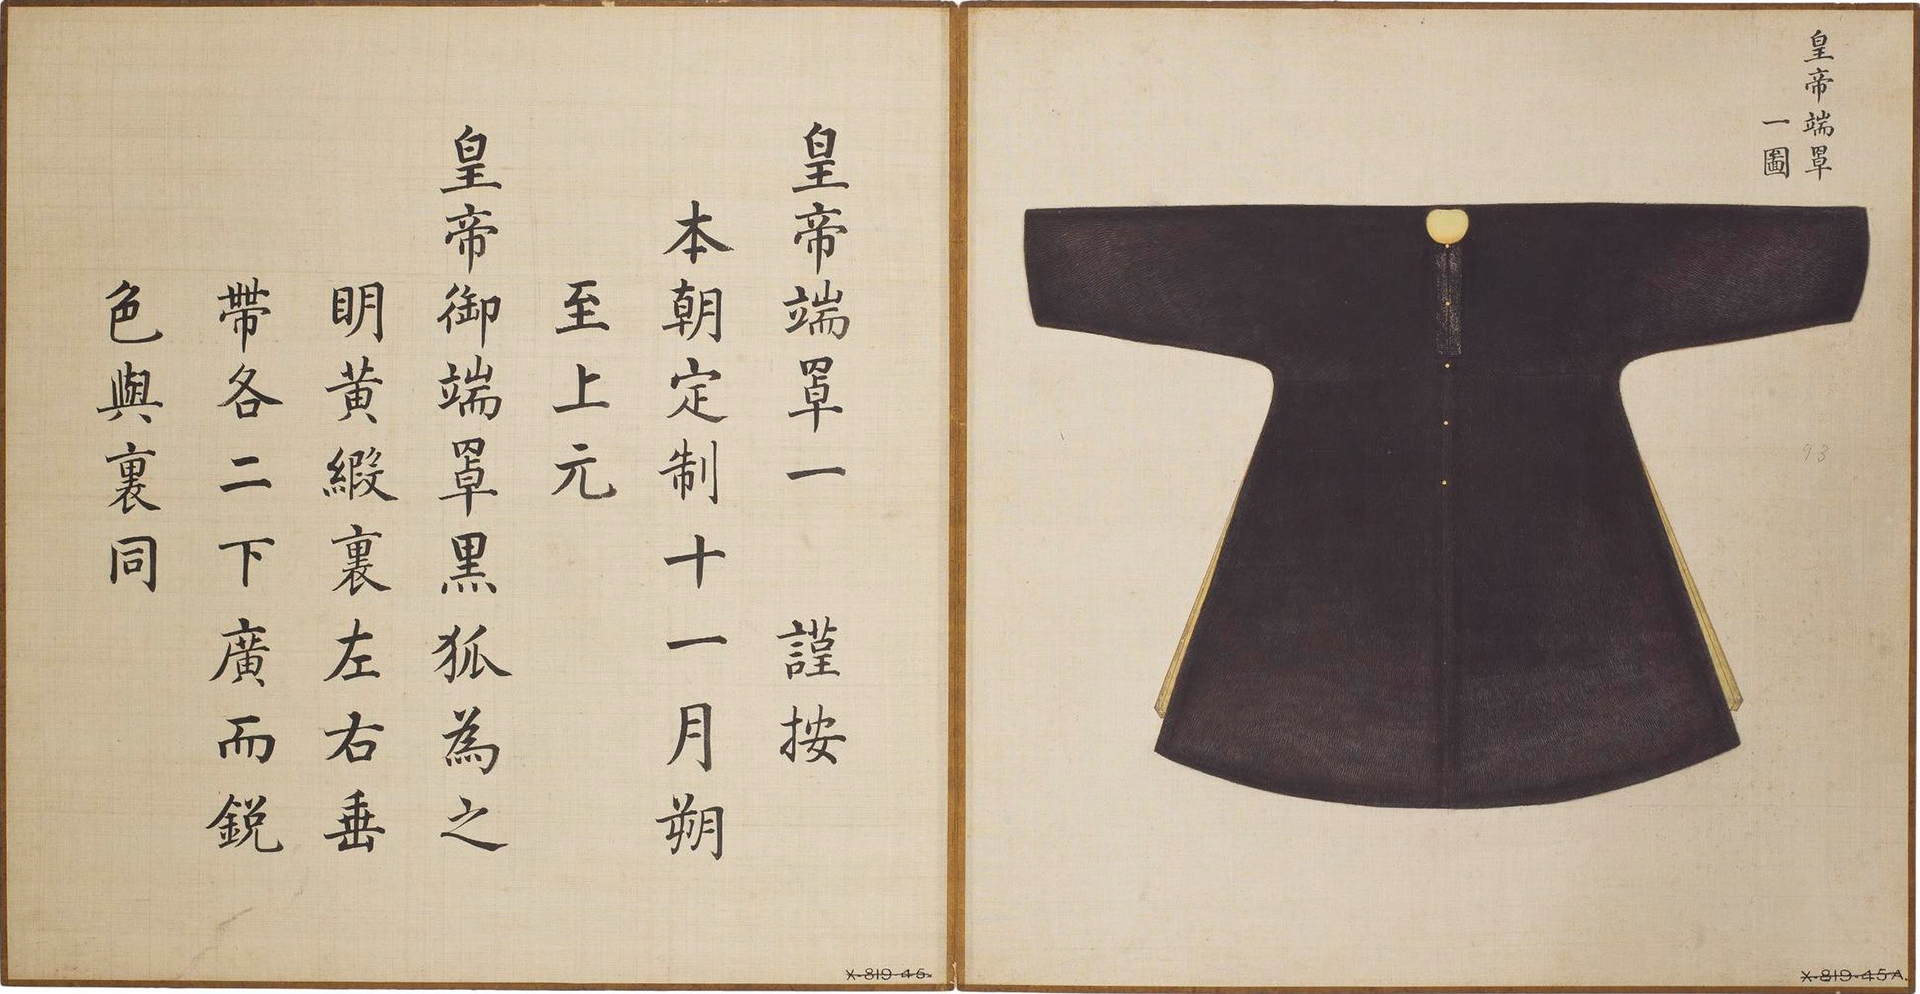 皇帝端罩
一圖
皇帝端罩一 謹按
本朝定制十一月朔
至上元
皇帝御端罩黒狐為之
明黄緞裏左右垂
帶各二下廣而銳
色與裏同
93
X-819-45.
X-819-45A.